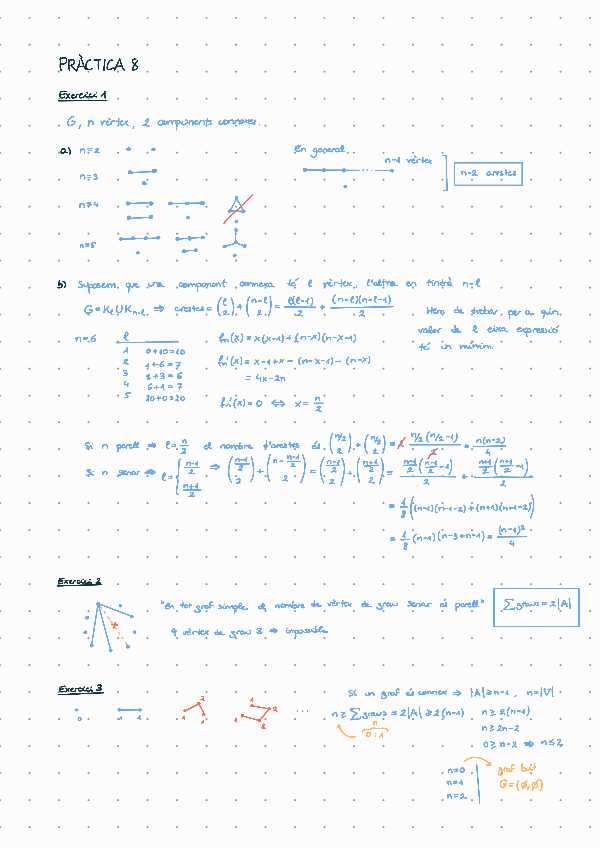 PRÀCTICA 8
Exercici 1
G, n vèrtex, 2 components connexes.
a) n=2
En general
n-1 vèrtex
n-2 arestes
n=3
n=4
n=5
b) Suposem que una component connexa té l vèrtex, l'altra en tindrà n-l
G = K_l ∪ K_{n-l} ⇒ arestes = (l 2) + (n-l 2) = l(l-1)/2 + (n-l)(n-l-1)/2
Hem de trobar per a quin
valor de l eixa expressió
té un mínim.
n=6 l
1 0+10=10
2 1+6=7
3 3+3=6
4 6+1=7
5 10+0=10
fn(x) = x(x-1) + (n-x)(n-x-1)
fn'(x) = x-1+x - (n-x-1) - (n-x)
= 4x-2n
fn'(x) = 0 ⇔ x = n/2
Si n parell ⇒ l = n/2 el nombre d'arestes és (n/2 2) + (n/2 2) = 2 n/2 (n/2 -1)/2 = n(n-2)/4
Si n senar ⇒ l = { n-1/2 n+1/2 ⇒ (n-1/2 2) + (n - n-1/2 2) = (n-1/2 2) + (n+1/2 2) = n-1/2 (n-1/2 -1)/2 + n+1/2 (n+1/2 -1)/2
= 1/8 ((n-1)(n-1-2) + (n+1)(n+1-2))
= 1/8 (n-1)(n-3+n+1) = (n-1)²/4
Exercici 2
"En tot graf simple el nombre de vèrtex de grau senar és parell"
∑ graus = 2|A|
9 vèrtex de grau 3 ⇒ impossible
Exercici 3
Si un graf és connex ⇒ |A| ≥ n-1, n = |V|
0
1 1
1 2 1
1 2 2 1
...
n ≥ ∑ graus = 2|A| ≥ 2(n-1)
n
0 : 1
n ≥ 2(n-1)
n ≥ 2n-2
0 ≥ n-2 ⇒ n ≤ 2
n=0
n=1
n=2
graf buit
G = (∅,∅)